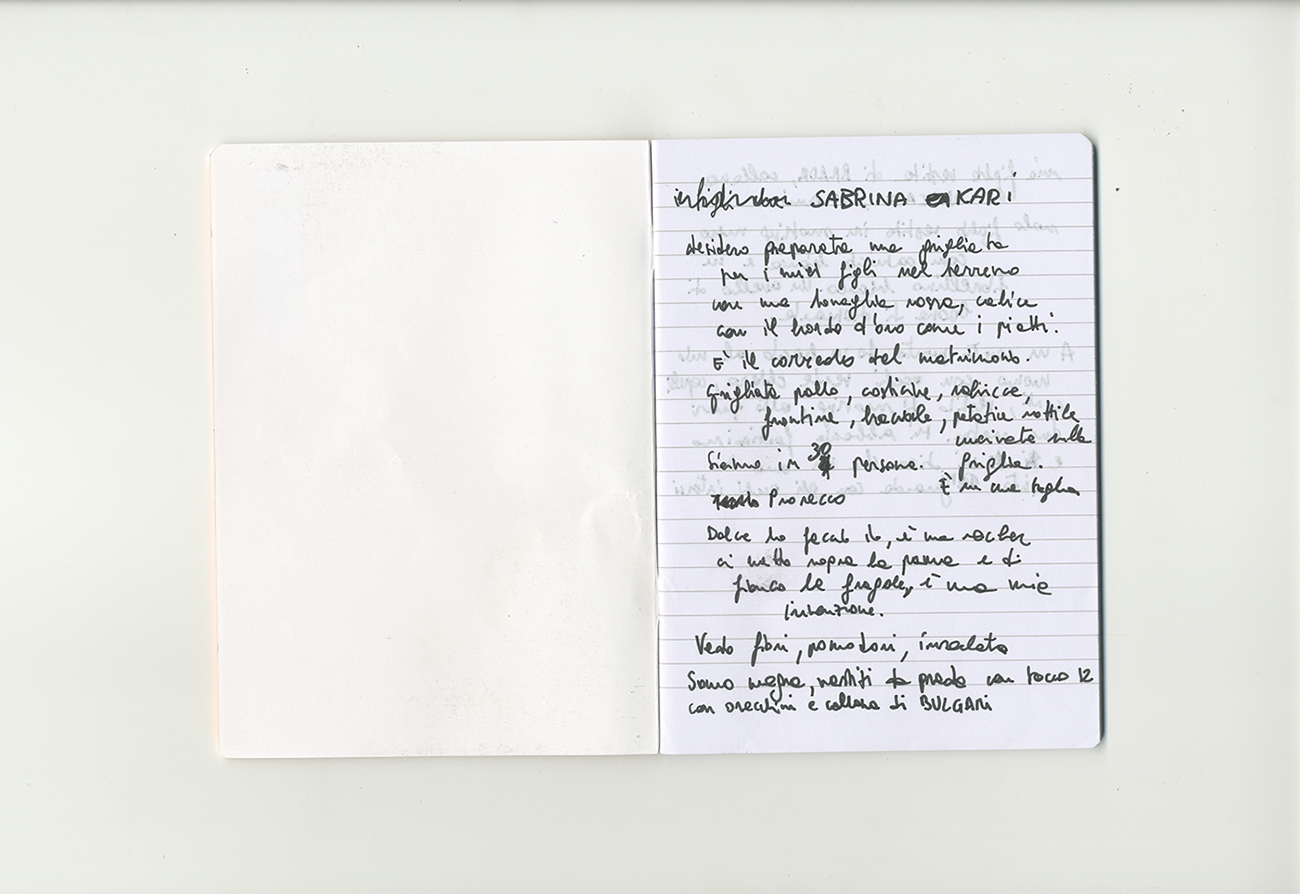 SABRINA KARI
desidero preparata una grigliata
per i miei figli nel terreno
con una tovaglia rossa, calice
con il bordo d'oro come i piatti.
È il corredo del matrimonio.
Grigliata pollo, costicine, salsicce,
fiorentine, braciole, patatine sottile
cucinate sulla
Siamo in 30 persone. griglia.
È in una teglia
Prosecco
Dolce lo faccio io, è una rocher
ci metto sopra la panna e di
fianco le fragole, è una mia
invenzione.
Vedo fiori, pomodori, insalata
Sono magra, vestiti da prada con tacco 12
con orecchini e collana di BULGARI